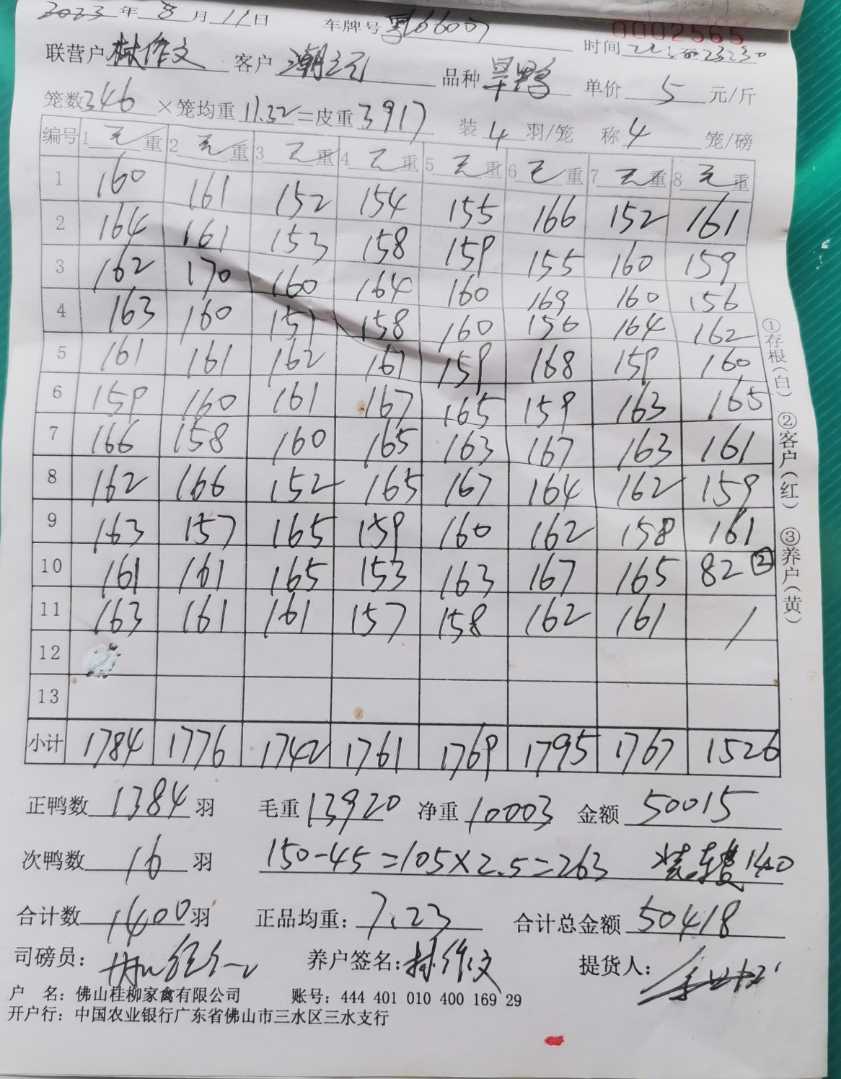 2023 年 8 月 11 日 车牌号 0002565
联营户 林作文 客户 潮之 品种 旱鸭 单价 5 元/斤 时间
笼数 346 ×笼均重 11.32 =皮重 3917 装 4 羽/笼 称 4 笼/磅
编号 1 毛重 2 毛重 3 毛重 4 毛重 5 毛重 6 毛重 7 毛重 8 毛重
1 160 161 152 154 155 166 152 161
2 164 161 153 158 159 155 160 159
3 162 170 160 164 160 169 160 156
4 163 160 151 158 160 156 164 162
5 161 161 162 161 159 168 159 160
6 159 160 161 167 165 159 163 165
7 166 158 160 165 163 167 163 161
8 162 166 152 165 167 164 162 159
9 163 157 165 159 160 162 158 161
10 161 161 165 153 163 167 165 82 ②
11 163 161 161 157 158 162 161 /
12
13
小计 1784 1776 1742 1761 1769 1795 1767 1526
正鸭数 1384 羽 毛重 13920 净重 10003 金额 50015
次鸭数 16 羽 150-45=105×2.5=263 装车费 140
合计数 1400 羽 正品均重: 7.23 合计总金额 50418
司磅员: 养户签名: 林作文 提货人:
户 名: 佛山桂柳家禽有限公司 账号: 444 401 010 400 169 29
开户行: 中国农业银行广东省佛山市三水区三水支行
①存根(白) ②客户(红) ③养户(黄)